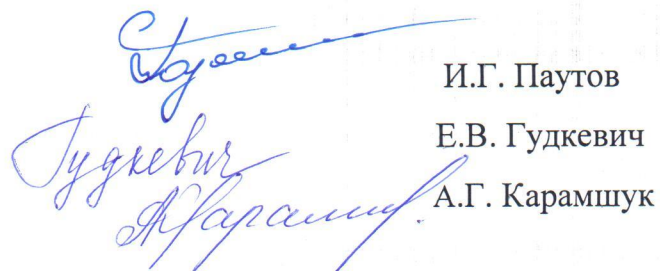 И.Г. Паутов
Гудкевич Е.В. Гудкевич
А.Г. Карамшук